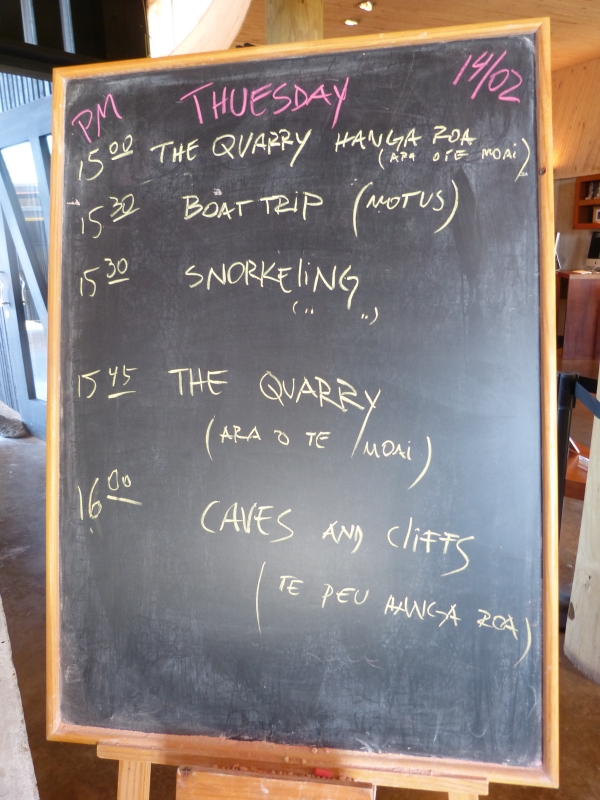 PM THUESDAY 14/02
15 00 THE QUARRY HANGA ROA
(ARA O TE MOAi)
15 30 BOAT TRiP (MOTUS)
15 30 SNORKEliNG
(" ")
15 45 THE QUARRY
(ARA O TE MOAi)
16 00
CAVES AND CliFFS
(TE PEU HANGA ROA)